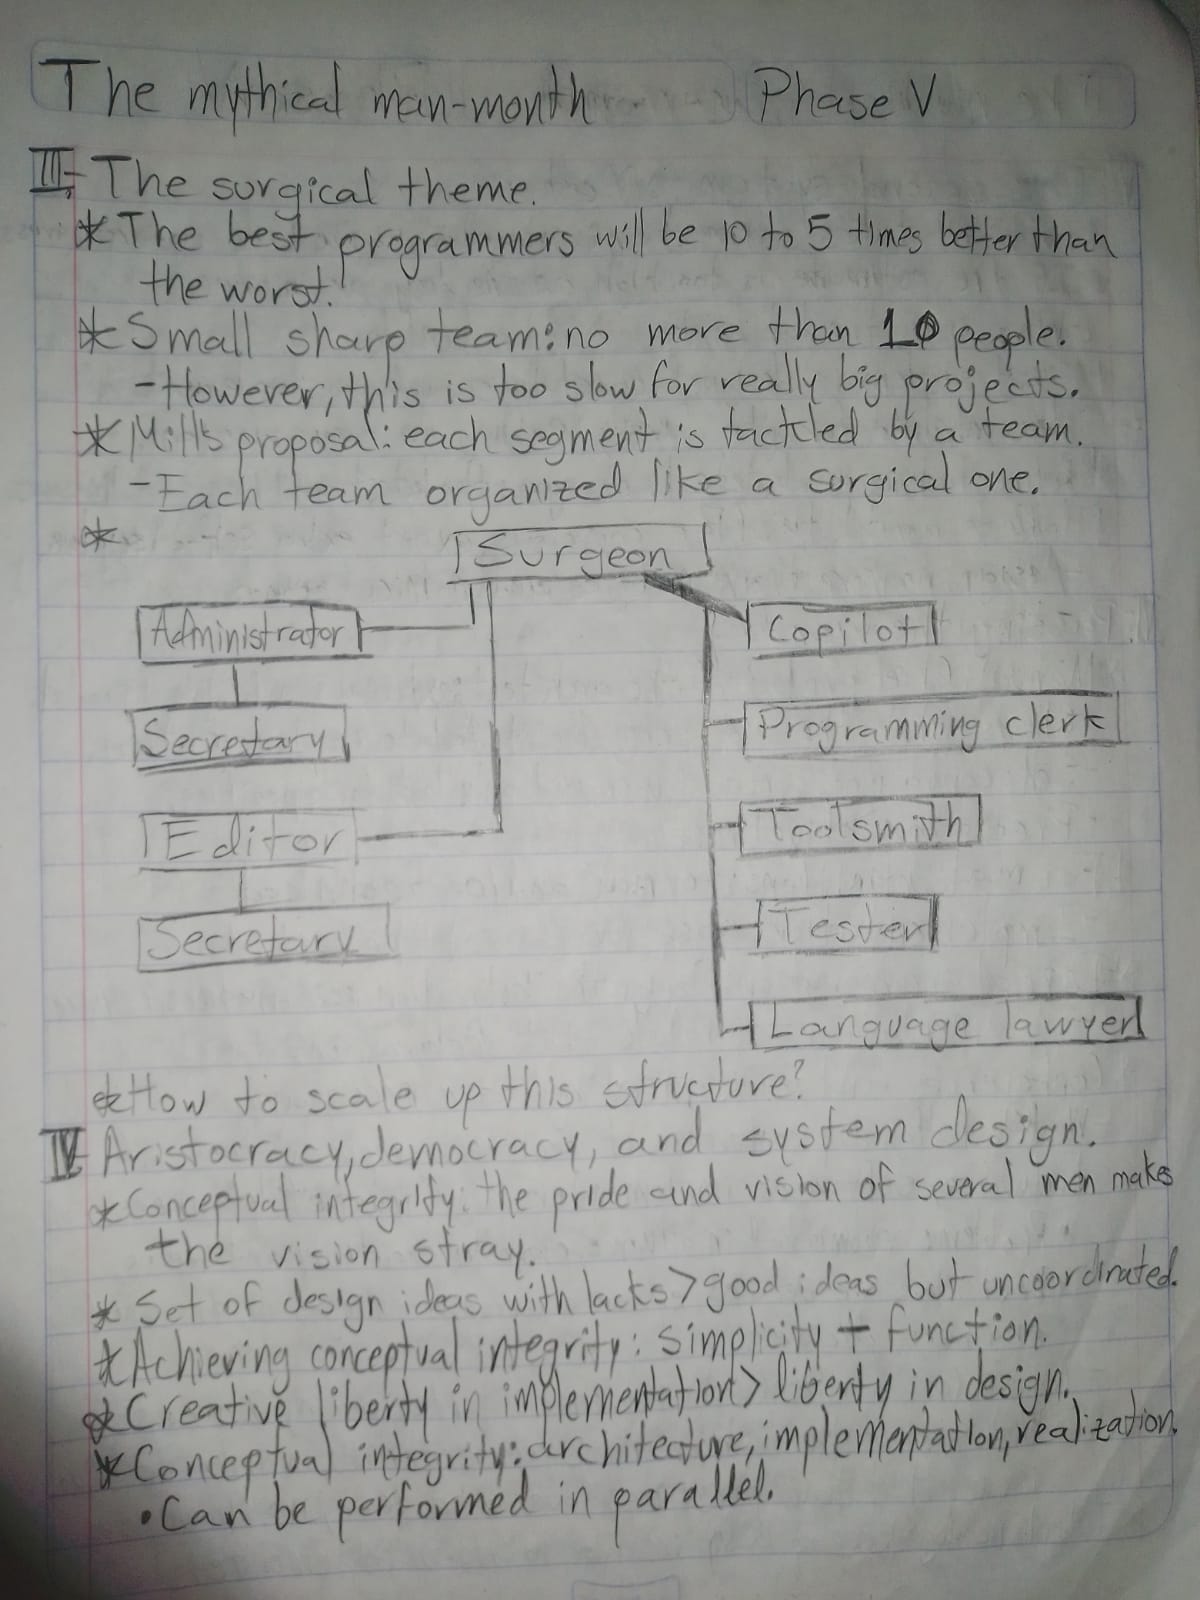 The mythical man-month Phase V
III- The surgical theme.
* The best programmers will be 10 to 5 times better than
the worst.
* Small sharp team: no more than 10 people.
- However, this is too slow for really big projects.
* Mill's proposal: each segment is tackled by a team.
- Each team organized like a surgical one.
*
Surgeon
Administrator
Copilot
Secretary
Programming clerk
Editor
Toolsmith
Secretary
Tester
Language lawyer
* How to scale up this structure?
IV- Aristocracy, democracy, and system design.
* Conceptual integrity: the pride and vision of several men makes
the vision stray.
* Set of design ideas with lacks > good ideas but uncoordinated.
* Achieving conceptual integrity: simplicity + function.
* Creative liberty in implementation > liberty in design.
* Conceptual integrity: architecture, implementation, realization.
• Can be performed in parallel.